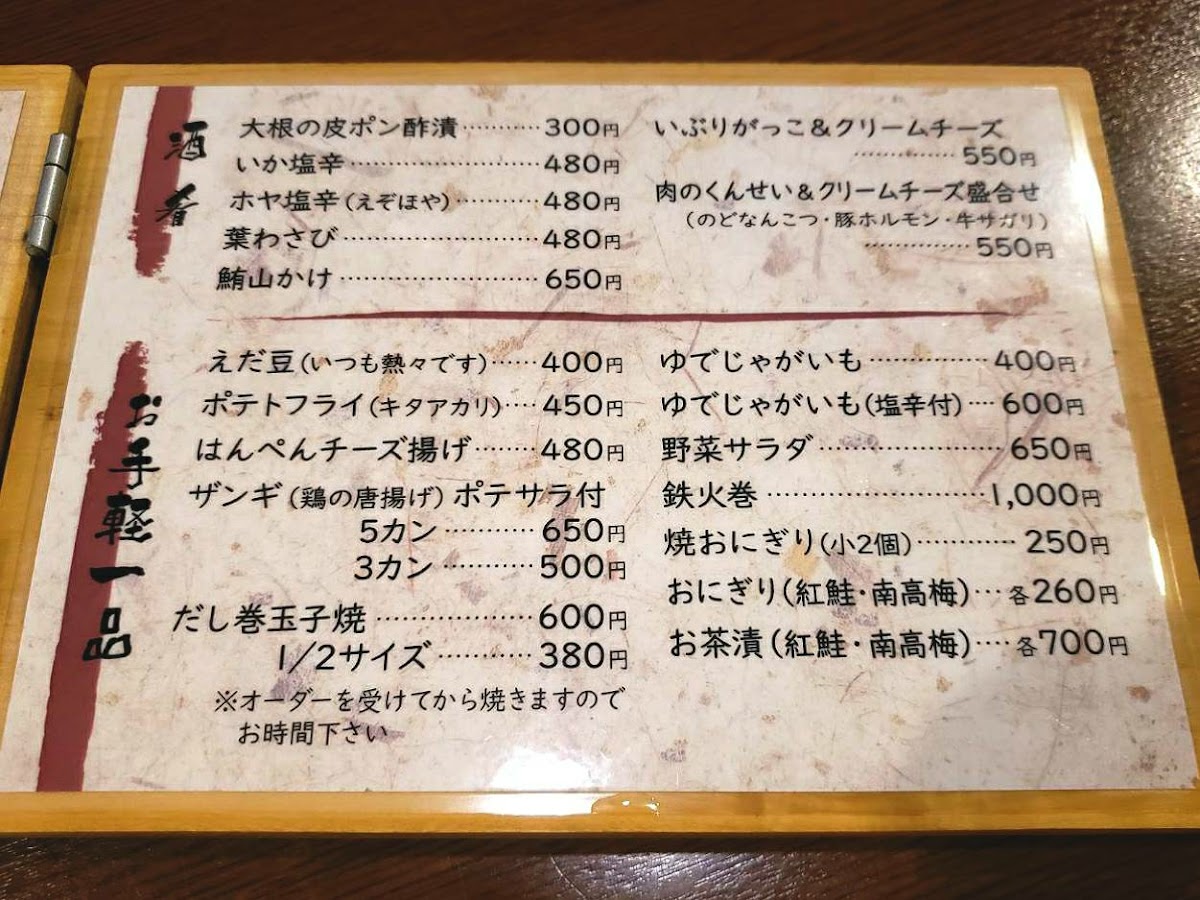 酒肴
大根の皮ポン酢漬…………300円
いか塩辛…………………480円
ホヤ塩辛(えぞほや)…………480円
葉わさび…………………480円
鮪山かけ…………………650円
いぶりがっこ&クリームチーズ
……………550円
肉のくんせい&クリームチーズ盛合せ
(のどなんこつ・豚ホルモン・牛サガリ)
……………550円
お手軽一品
えだ豆(いつも熱々です)……400円
ポテトフライ(キタアカリ)……450円
はんぺんチーズ揚げ………480円
ザンギ(鶏の唐揚げ)ポテサラ付
5カン…………650円
3カン…………500円
だし巻玉子焼……………600円
1/2サイズ…………380円
※オーダーを受けてから焼きますので
お時間下さい
ゆでじゃがいも……………400円
ゆでじゃがいも(塩辛付)…600円
野菜サラダ…………………650円
鉄火巻……………………1,000円
焼おにぎり(小2個)…………250円
おにぎり(紅鮭・南高梅)…各260円
お茶漬(紅鮭・南高梅)……各700円